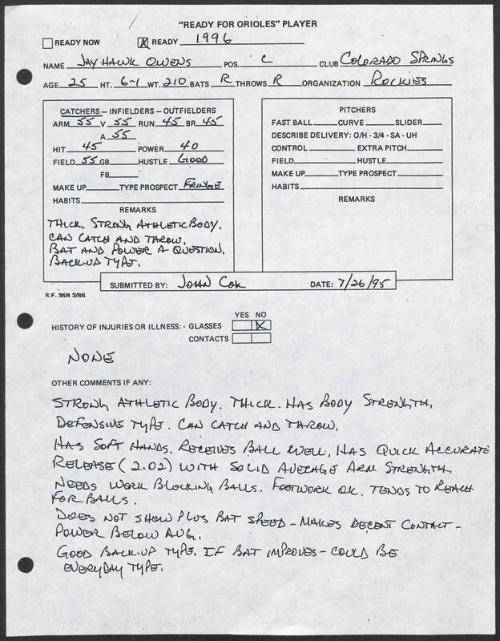 "READY FOR ORIOLES" PLAYER
READY NOW X READY 1996
NAME JAYHAWK OWENS POS. C CLUB COLORADO SPRINGS
AGE 25 HT. 6-1 WT. 210 BATS R THROWS R ORGANIZATION ROCKIES
CATCHERS - INFIELDERS - OUTFIELDERS
ARM 55 V 55 RUN 45 BR 45
A 55
HIT 45 POWER 40
FIELD 55 GB HUSTLE GOOD
FB
MAKE UP TYPE PROSPECT FRINGE
HABITS
REMARKS
THICK STRONG ATHLETIC BODY.
CAN CATCH AND THROW.
BAT AND POWER A QUESTION.
BACK-UP TYPE.
PITCHERS
FAST BALL CURVE SLIDER
DESCRIBE DELIVERY: O/H - 3/4 - SA - UH
CONTROL EXTRA PITCH
FIELD HUSTLE
MAKE UP TYPE PROSPECT
HABITS
REMARKS
SUBMITTED BY: JOHN COX DATE: 7/26/95
S.F. 35B 3/85
YES NO
HISTORY OF INJURIES OR ILLNESS: - GLASSES X
CONTACTS
NONE
OTHER COMMENTS IF ANY:
STRONG ATHLETIC BODY. THICK. HAS BODY STRENGTH.
DEFENSIVE TYPE. CAN CATCH AND THROW.
HAS SOFT HANDS. RECEIVES BALL WELL. HAS QUICK ACCURATE
RELEASE (2.02) WITH SOLID AVERAGE ARM STRENGTH.
NEEDS WORK BLOCKING BALLS. FOOTWORK OK. TENDS TO REACH
FOR BALLS.
DOES NOT SHOW PLUS BAT SPEED - MAKES DECENT CONTACT -
POWER BELOW AVG.
GOOD BACK-UP TYPE. IF BAT IMPROVES - COULD BE
EVERYDAY TYPE.